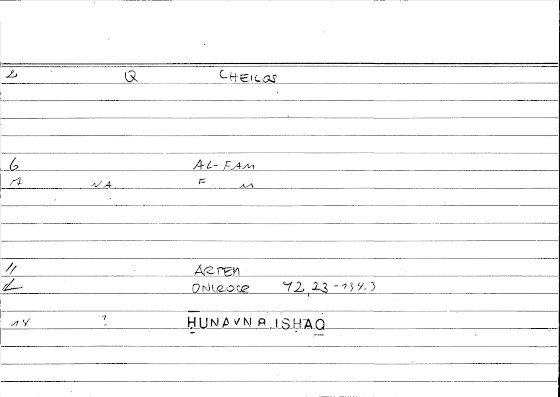 2 Q CHEILOS
6 AL-FAM
NA F M
11 ARTEM
ONIROCR 72,23-134.3
14 ? HUNAYN B. ISHAQ